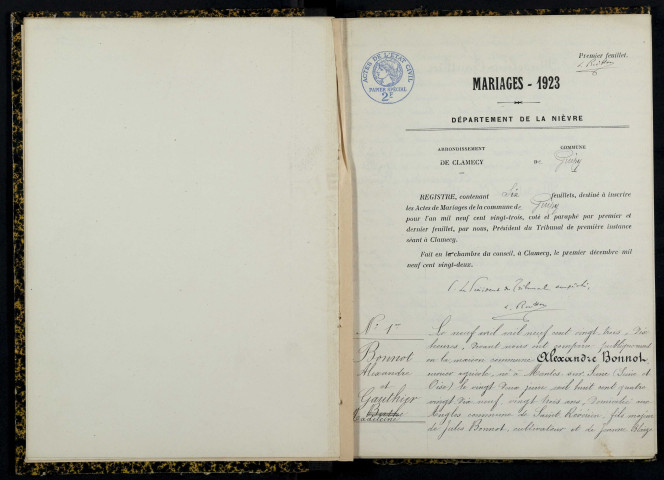 Premier feuillet.
ACTES DE L'ETAT CIVIL
PAPIER SPECIAL
2F
MARIAGES - 1923
DÉPARTEMENT DE LA NIÈVRE
ARRONDISSEMENT
DE CLAMECY
COMMUNE
DE Guipy
REGISTRE, contenant Six feuillets, destiné à inscrire
les Actes de Mariages de la commune de Guipy
pour l'an mil neuf cent vingt-trois, coté et paraphé par premier et
dernier feuillet, par nous, Président du Tribunal de première instance
séant à Clamecy.
Fait en la chambre du conseil, à Clamecy, le premier décembre mil
neuf cent vingt-deux.
P. Le Président du Tribunal empêché
N° 1er
Bonnot
Alexandre
et
Gauthier
Berthe
Madeleine
Le neuf avril mil neuf cent vingt trois, dix
heures, devant nous ont comparu publiquement
en la maison commune Alexandre Bonnot,
né à Mantes sur Seine (Seine et
Oise) le vingt deux juin mil huit cent quatre
vingt dix neuf, vingt trois ans, domicilié aux
Angles commune de Saint Révérien, fils majeur
de Jules Bonnot, cultivateur et de Jeanne